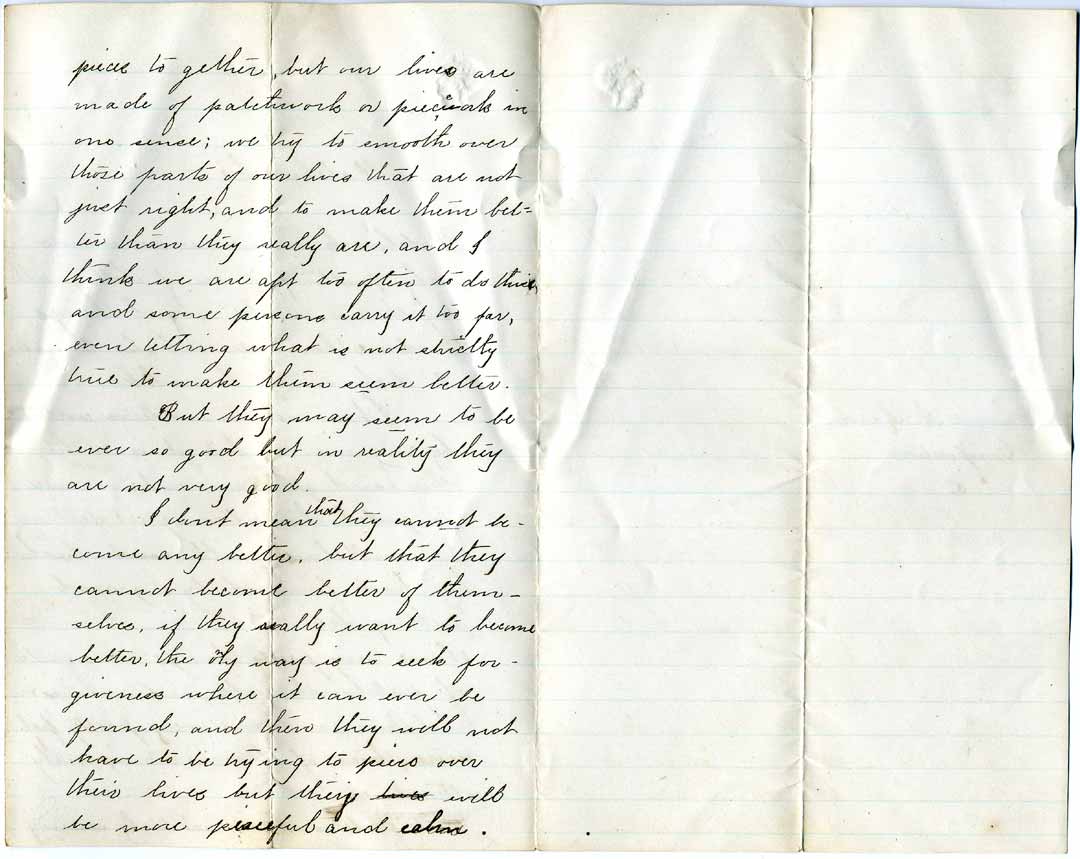 piece to gether, but our lives are
made of patchwork or piecework in
one sense; we try to smooth over
those parts of our lives that are not
just right, and to make them bet=
ter than they really are, and I
think we are apt too often to do this
and some persons carry it too far,
even letting what is not strictly
true to make them seem better.
But they may seem to be
ever so good but in reality they
are not very good.
I dont mean that they cannot be-
come any better, but that they
cannot become better of them-
selves, if they really want to become
better, the only way is to seek for-
giveness where it can ever be
found, and then they will not
have to be trying to piece over
their lives but they lives will
be more peaceful and calm.